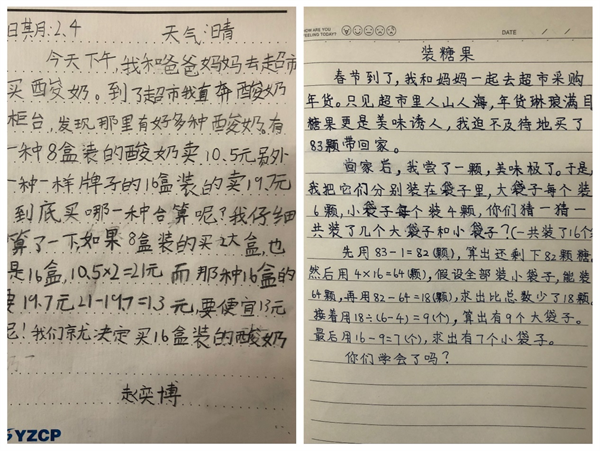 日期:2.4 天气:晴
今天下午,我和爸爸妈妈去超市
买酸奶。到了超市我直奔酸奶
柜台,发现那里有好多种酸奶。有
一种8盒装的酸奶卖10.5元,另外
一种一样牌子的16盒装的卖19.7元
到底买哪一种合算呢?我仔细
算了一下,如果8盒装的买2大盒,也
是16盒,10.5×2=21元 而那种16盒的
要19.7元,21-19.7=1.3元,要便宜1.3元
呢!我们京尤决定买16盒装的酸奶
赵奕博
YZCP
HOW ARE YOU
FEELING TODAY?
DATE / /
装糖果
春节到了,我和妈妈一起去超市采购
年货。只见超市里人山人海,年货琳琅满目
糖果更是美味诱人,我迫不及待地买了
83颗带回家。
回家后,我尝了一颗,美味极了。于是
我把它们分别装在袋子里,大袋子每个装
6颗,小袋子每个装4颗,你们猜一猜一
共装了几个大袋子和小袋子?(一共装了16个
先用83-1=82(颗),算出还剩下82颗糖,
然后用4×16=64(颗),假设全部装小袋子,能装
64颗,再用82-64=18(颗),求出比总数少了18颗,
接着用18÷(6-4)=9(个),算出有9个大袋子。
最后用16-9=7(个),求出有7个小袋子。
你们学会了吗?